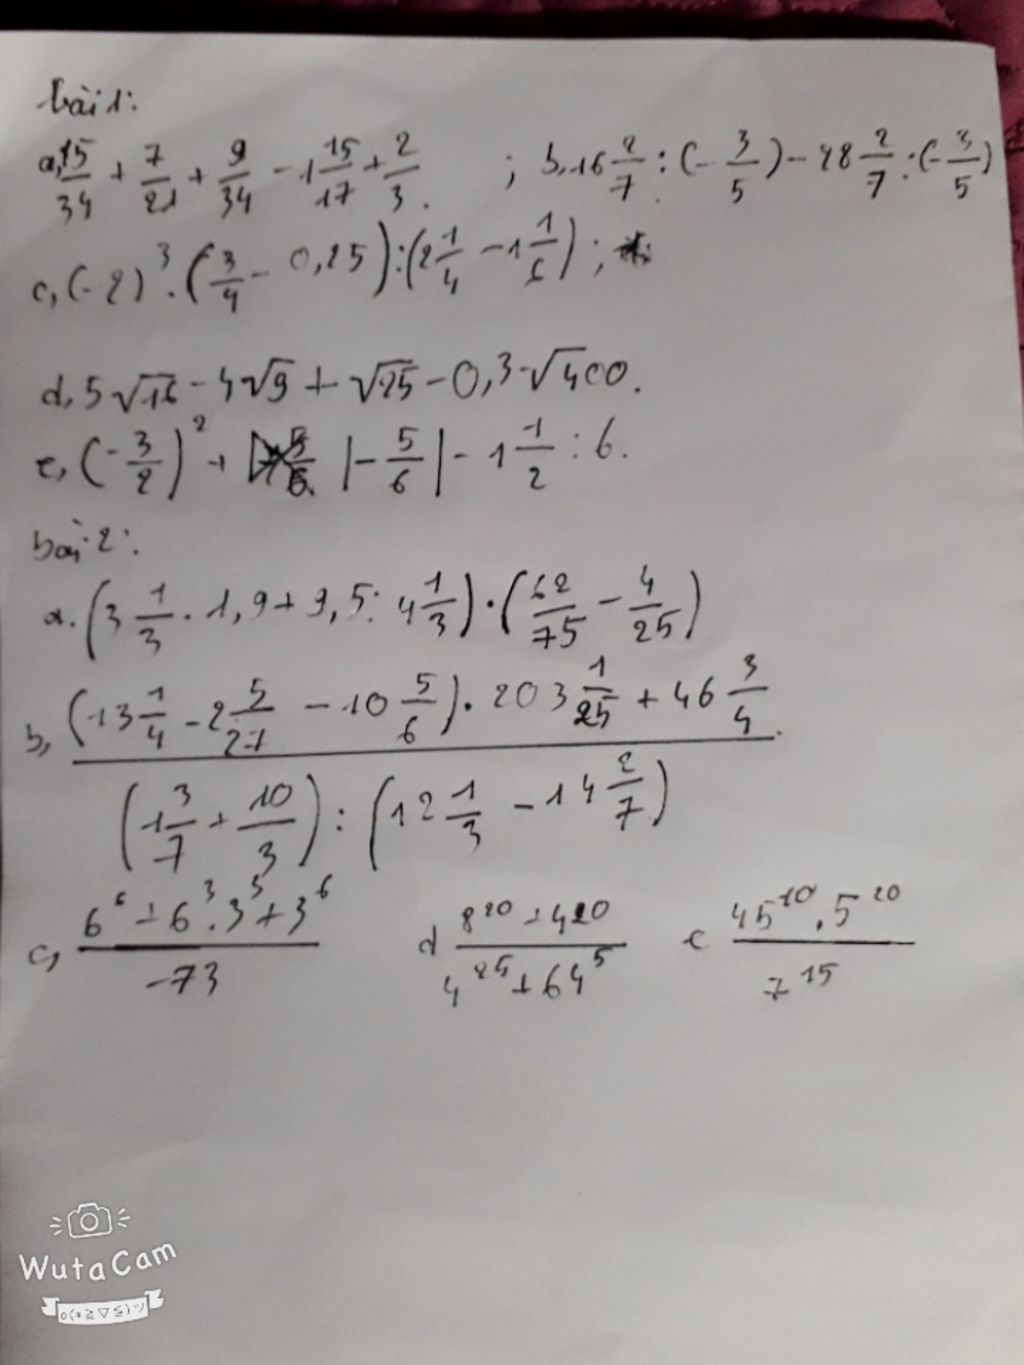 bài 1:
a, 15/34 + 7/21 + 9/34 - 1 15/17 + 2/3 . ; b, 16 2/7 : (- 3/5) - 28 2/7 : (- 3/5)
c, (-2)³ . (3/4 - 0,25) : (2 1/4 - 1 1/6) ;
d, 5√16 - 4√9 + √25 - 0,3√400.
e, (- 3/2)² + |- 5/6| - 1 1/2 : 6.
bài 2:
a. (3 1/3 . 1,9 + 9,5 : 4 1/3) . (62/75 - 4/25)
b, (13 1/4 - 2 5/27 - 10 5/6) . 203 1/25 + 46 3/4
(1 3/7 + 10/3) : (12 1/3 - 14 2/7)
c, 6⁶ + 6³ . 3³ + 3⁶ / -73 d 8²⁰ + 4²⁰ / 4²⁵ + 64⁵ e 45¹⁰ . 5²⁰ / 7¹⁵
WutaCam